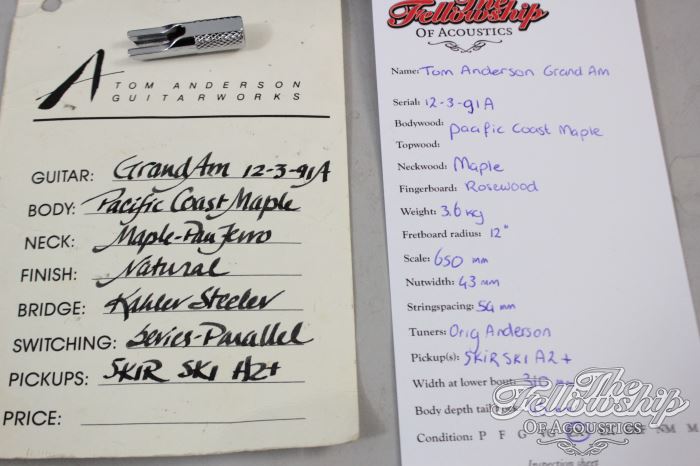 A TOM ANDERSON
GUITARWORKS
GUITAR: GrandAm 12-3-91A
BODY: Pacific Coast Maple
NECK: Maple-Pau Ferro
FINISH: Natural
BRIDGE: Kahler Steeler
SWITCHING: Series-Parallel
PICKUPS: SK1R SK1 H2+
PRICE:
The
Fellowship
OF ACOUSTICS
Name: Tom Anderson Grand Am
Serial: 12-3-91A
Bodywood: Pacific Coast Maple
Topwood:
Neckwood: Maple
Fingerboard: Rosewood
Weight: 3.6 kg
Fretboard radius: 12"
Scale: 650 mm
Nutwidth: 43 mm
Stringspacing: 54 mm
Tuners: Orig Anderson
Pickup(s): SK1R SK1 A2+
Width at lower bout: 310
Body depth tail
Condition: P F G VG
NM M
The
Fellowship
OF ACOUSTICS
Inspection sheet